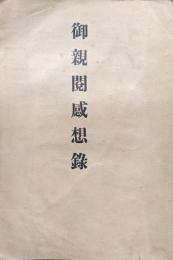 御親閲感想錄